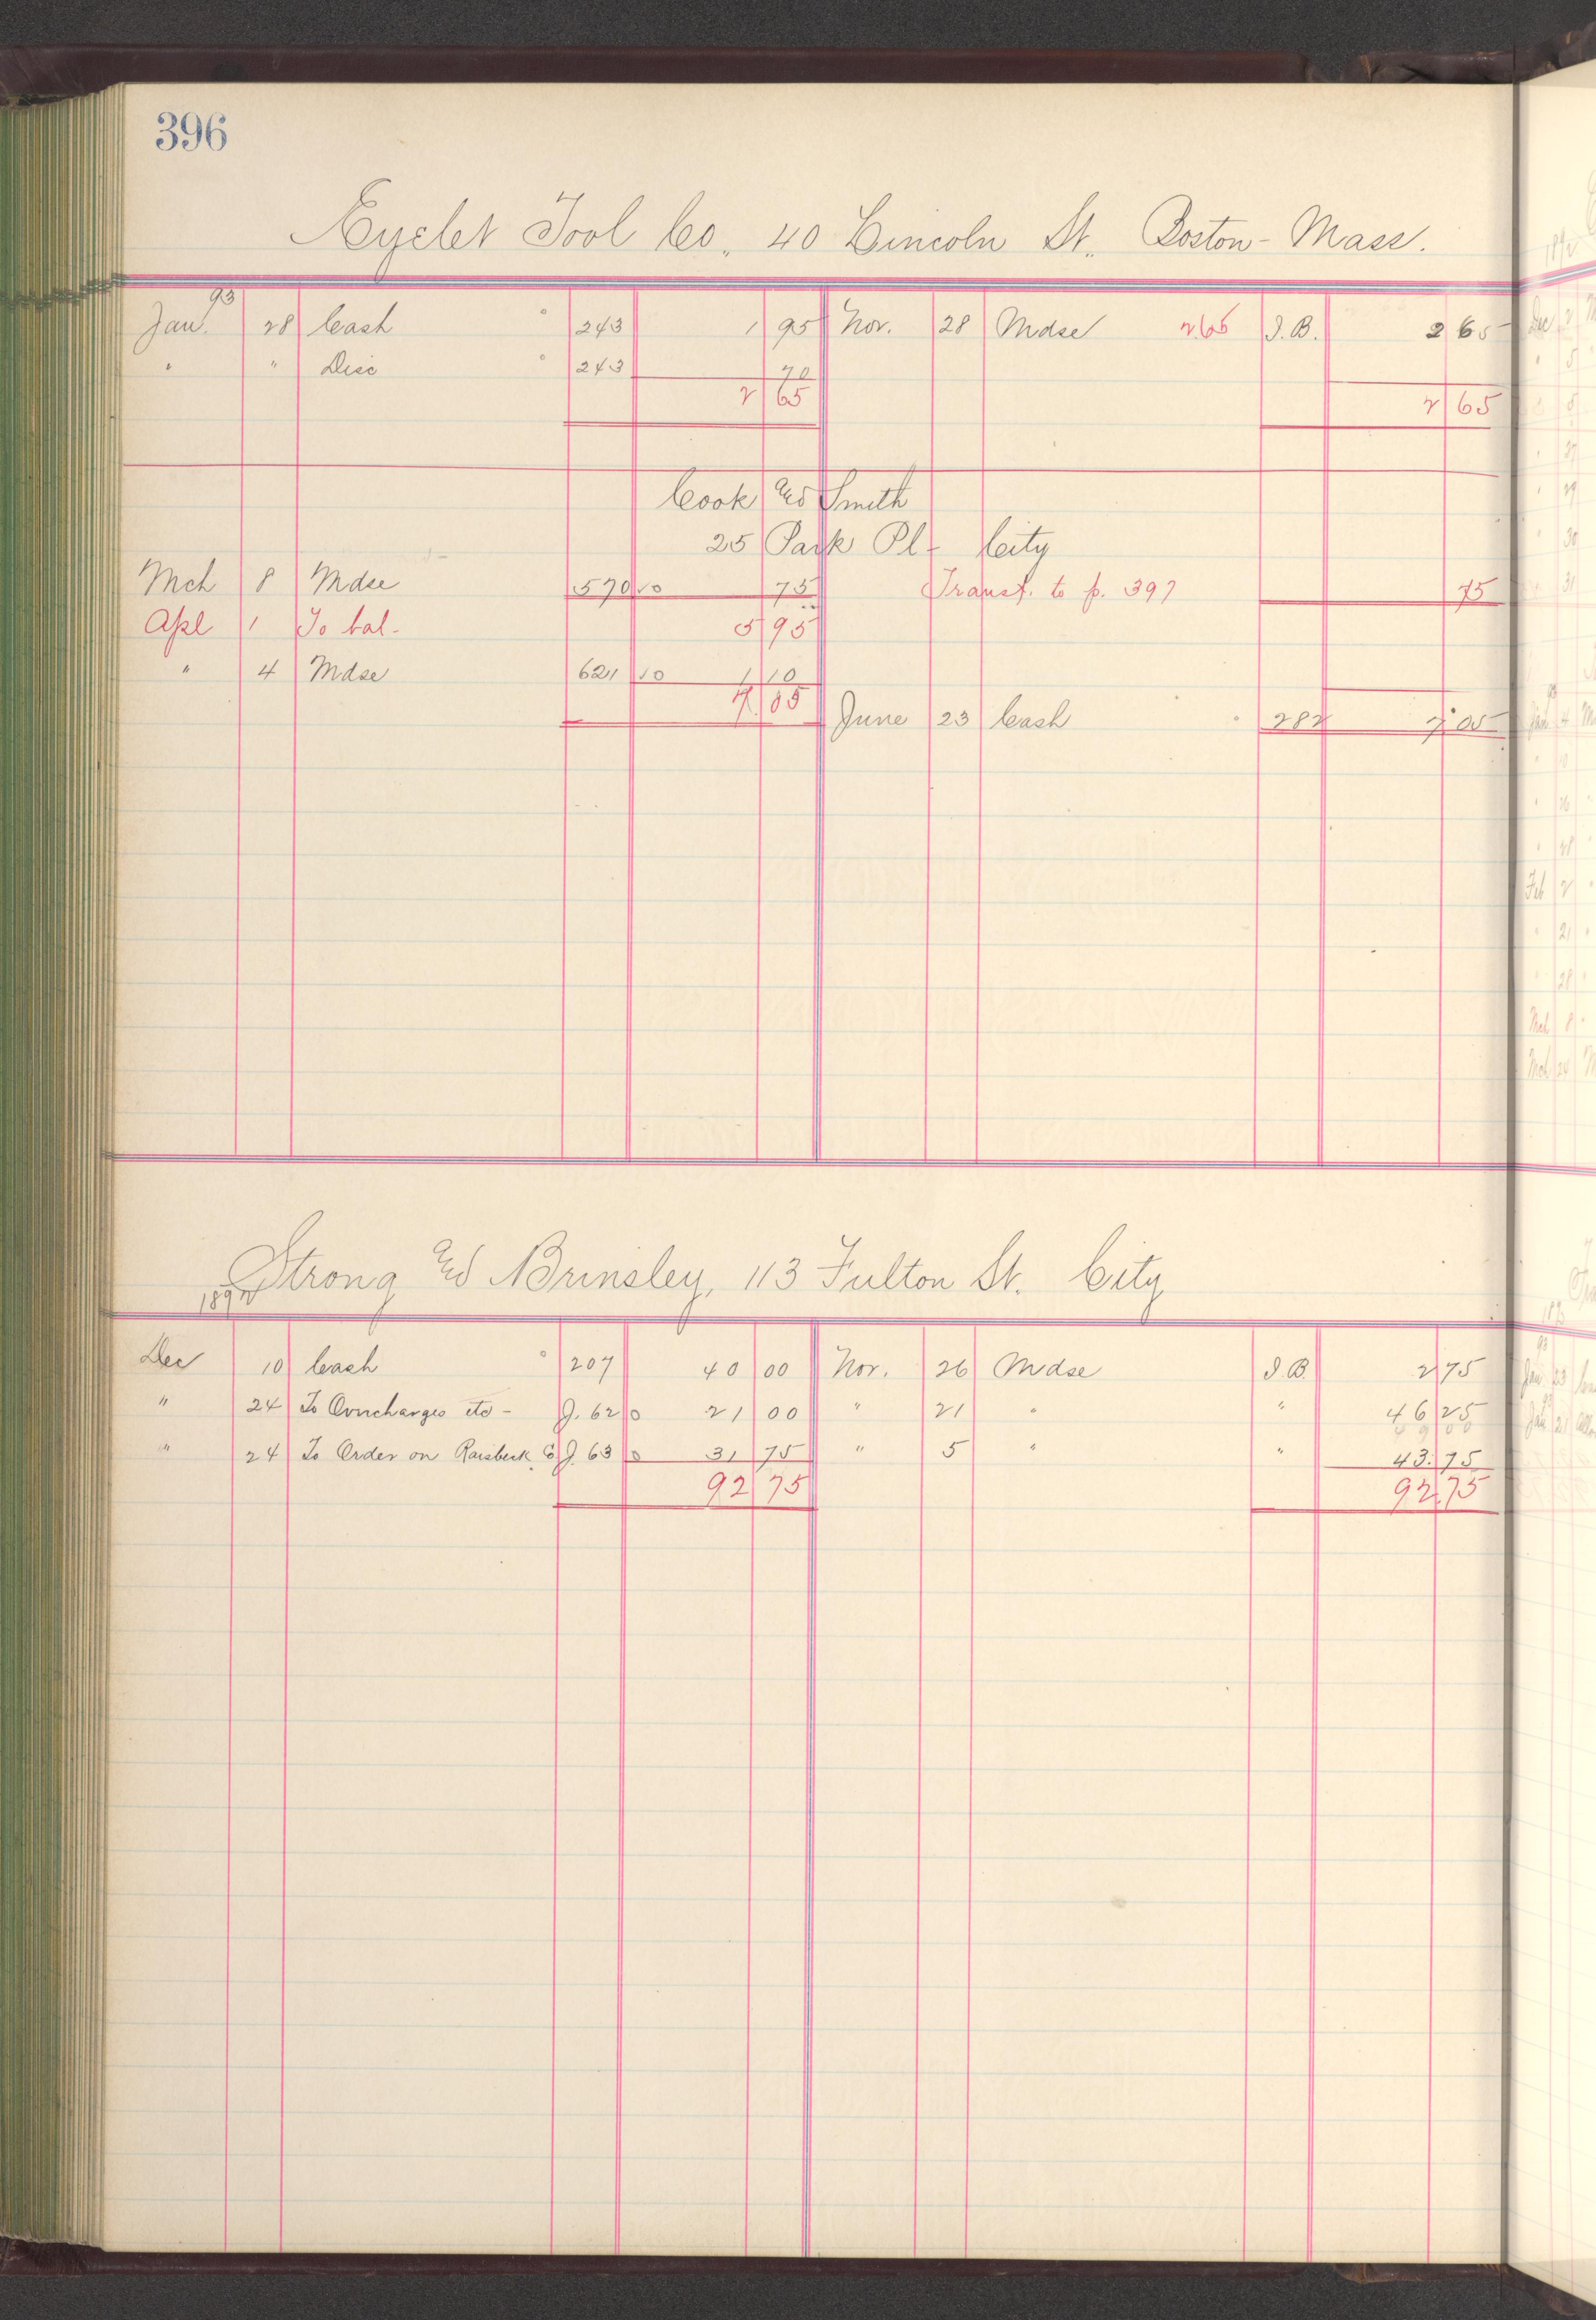 396
Eyelet Tool Co., 40 Lincoln St. Boston - Mass.
93
Jan. 28 Cash 243 1 95 Nov. 28 Mdse 265 I.B. 2 65
" " Disc 243 70
2 65 2 65
Cook & Smith
25 Park Pl - City
Mch 8 Mdse 570 10 75 Transf. to p. 397 75
Apl 1 To bal - 5 95
" 4 Mdse 621 10 1 10
7 05
June 23 Cash 282 7 05
Strong & Brinsley, 113 Fulton St. City
1892
Dec 10 Cash 207 40 00 Nov. 26 Mdse I.B. 2 75
" 24 To Overcharges etc - J. 62 21 00 " 21 " " 46 25
" 24 To Order on Raisbeck J. 63 31 75 " 5 " " 43 75
92 75 92 75